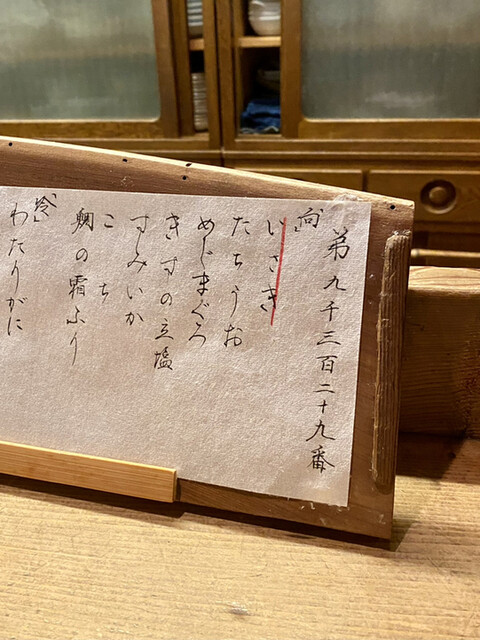 第九千三百二十九番
「向」
いさき
たちうお
めじまぐろ
きすの立塩
すみいか
こち
鯛の霜ふり
「冷」
わたりがに